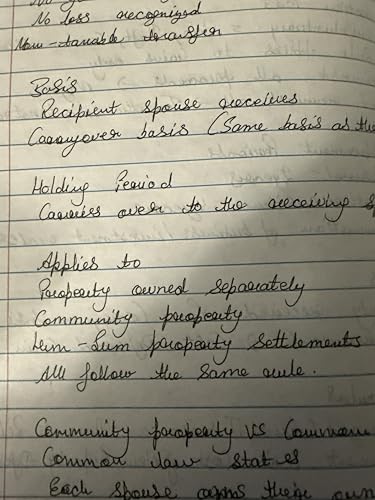 No loss recognized
Non-taxable transfer
Basis
Recipient spouse receives
Carryover basis (Same basis as the
Holding Period
Carries over to the receiving
Applies to
Property owned separately
Community property
Lum-Sum property settlements
All follow the same rule.
Community property vs Common
Common law states
Each spouse owns their own